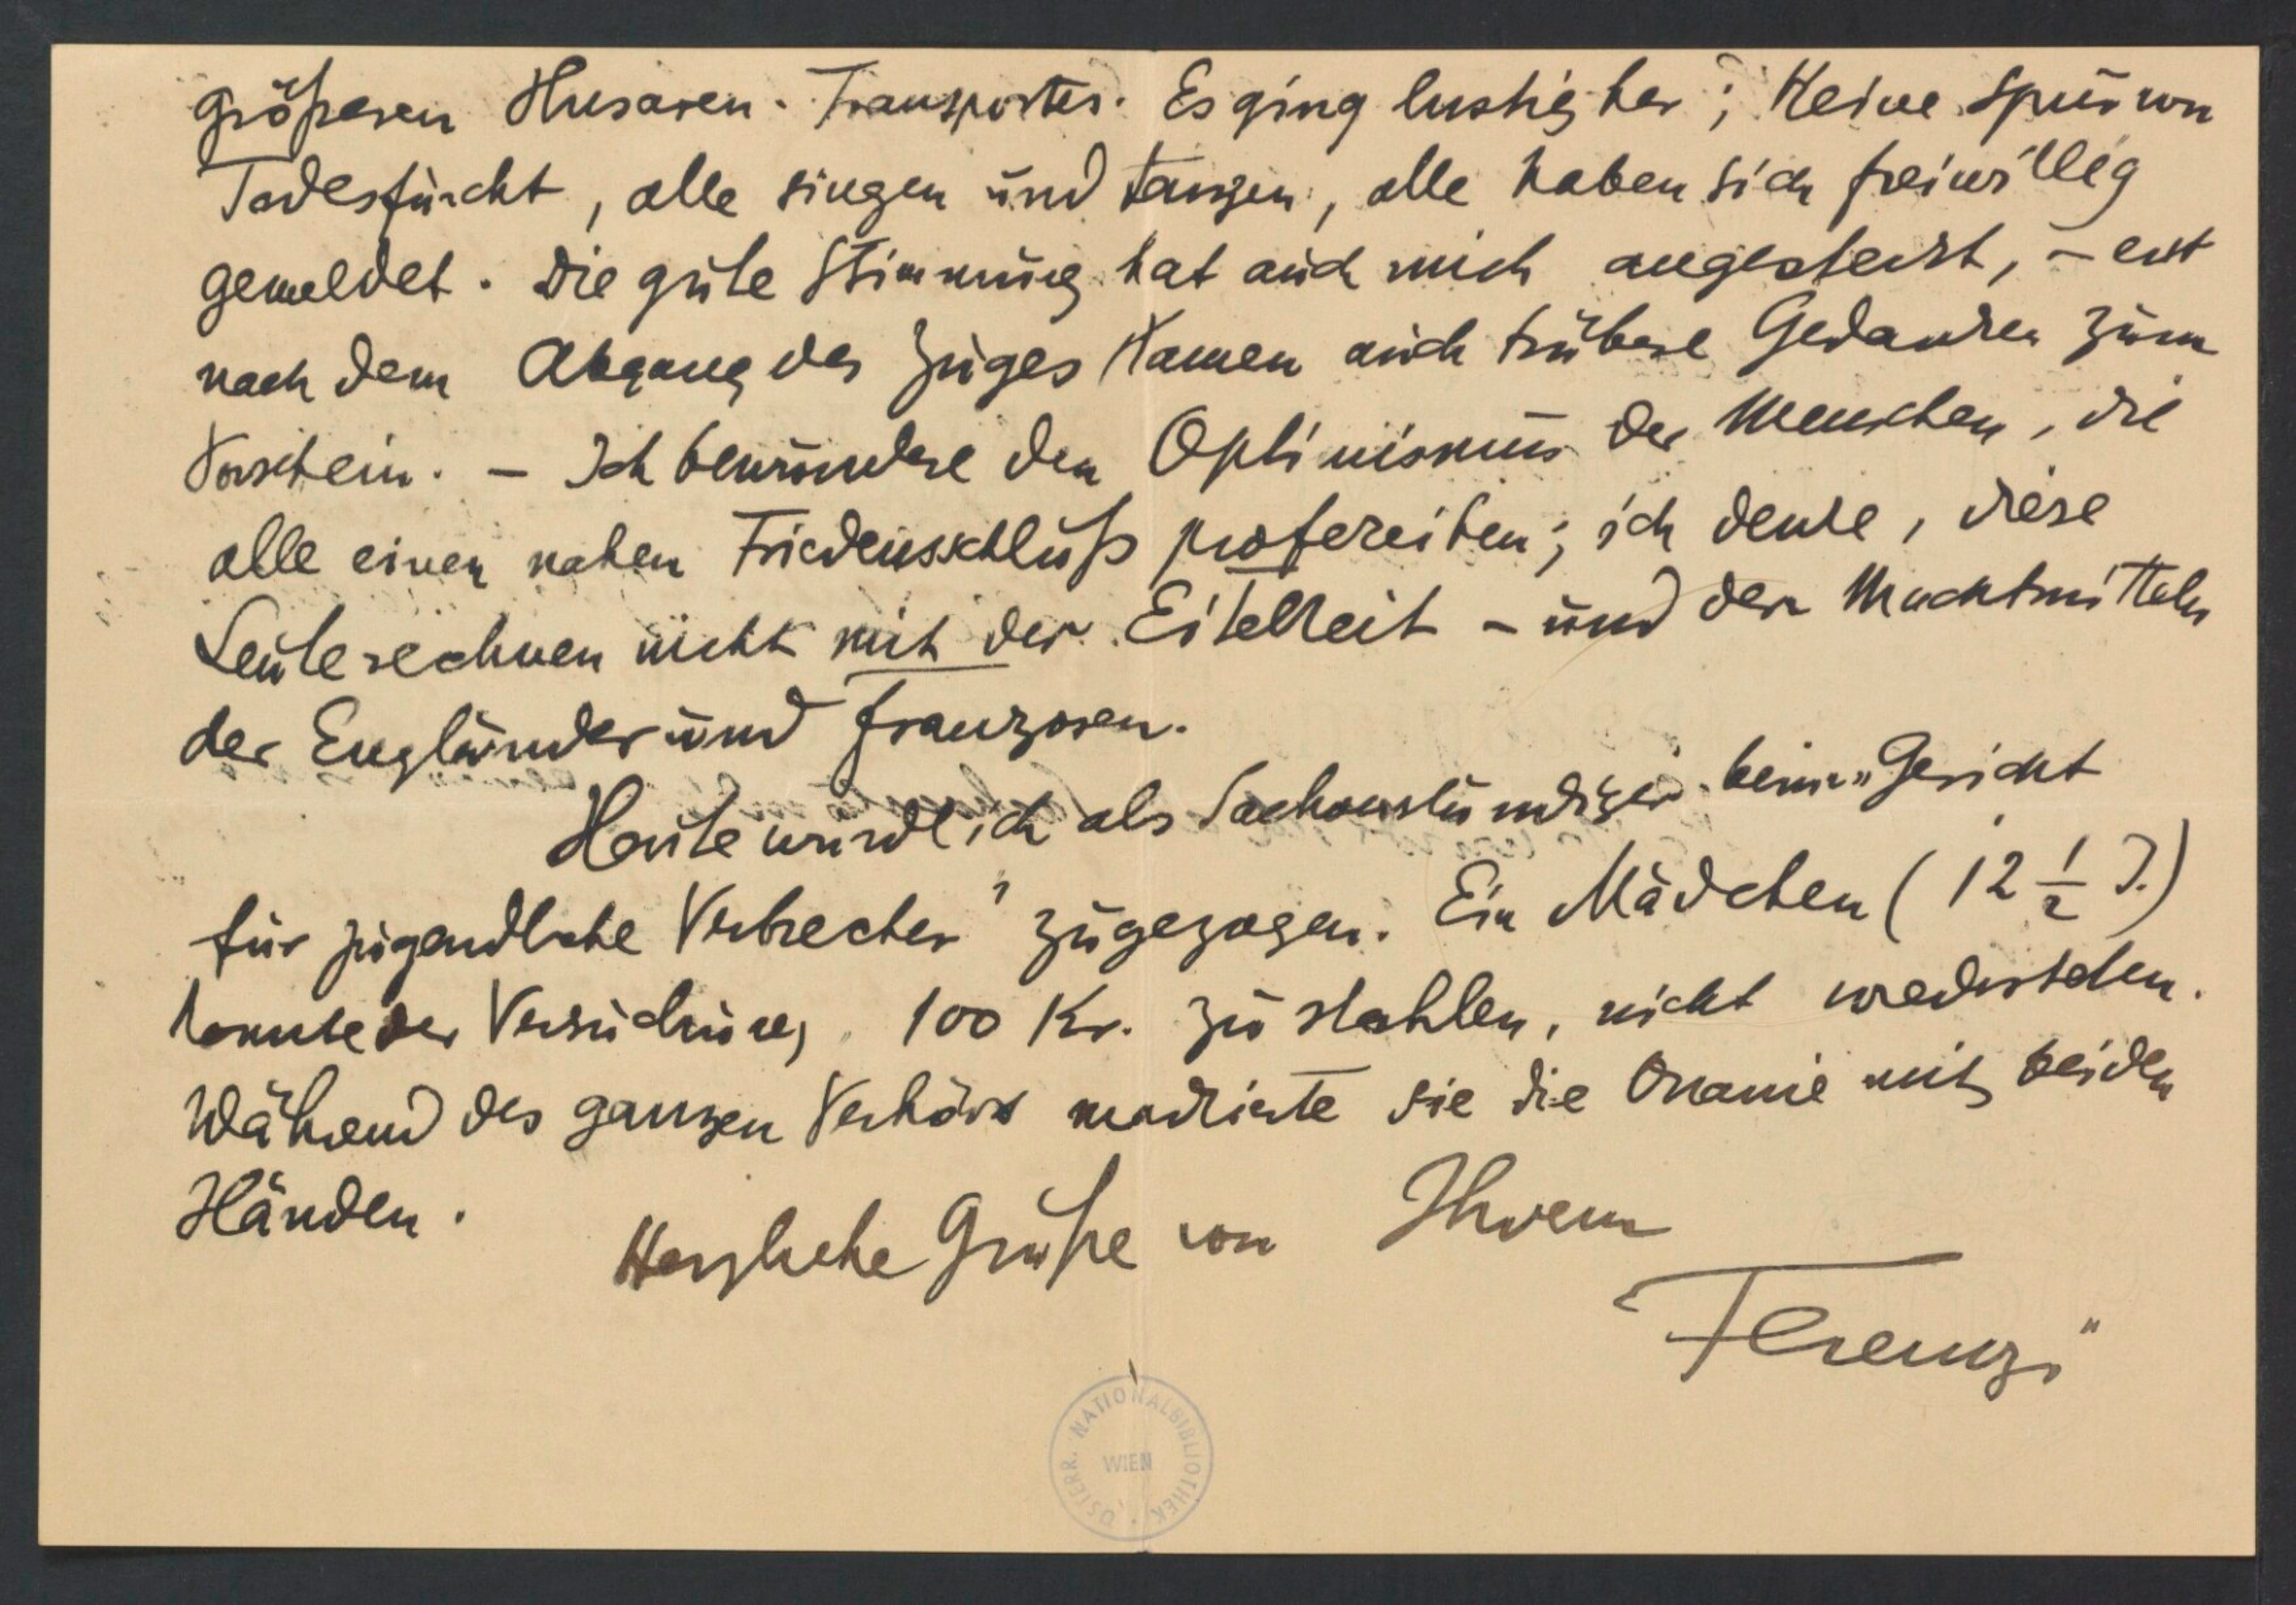 größeren Husaren-Transportes. Es ging lustig her; keine Spur von
Todesfurcht, alle singen und tanzen, alle haben sich freiwillig
gemeldet. Die gute Stimmung hat auch mich angesteckt, – erst
nach dem Abgang des Zuges kamen auch trübere Gedanken zum
Vorschein. – Ich bewundere den Optimismus der Menschen, die
alle einen nahen Friedensschluß profezeihen; ich denke, diese
Leute rechnen nicht mit der Eitelkeit – und den Machtmitteln
der Engländer und Franzosen.
Heute wurde ich als Sachverständiger beim „Gericht
für jugendliche Verbrecher" zugezogen. Ein Mädchen (12 1/2 J.)
konnte der Versuchung, 100 Kr. zu stehlen, nicht wiederstehen.
Während des ganzen Verhörs markierte sie die Onanie mit beiden
Händen.
Herzliche Grüße von Ihrem
Ferenczi
ÖSTERR. NATIONALBIBLIOTHEK
WIEN